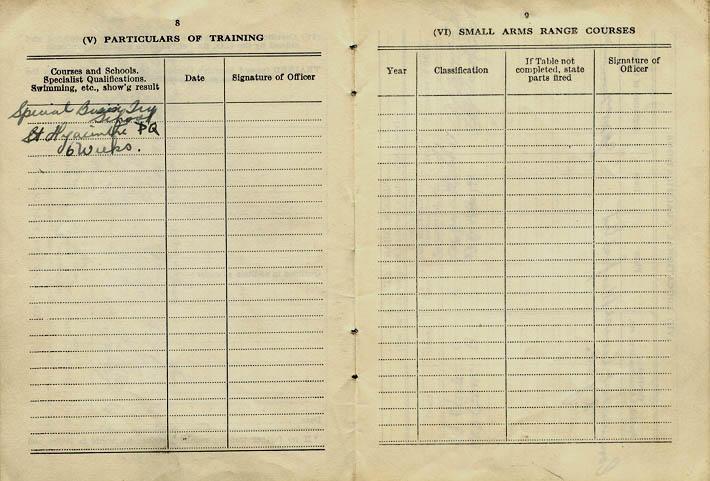 8
(V) PARTICULARS OF TRAINING
Courses and Schools.
Specialist Qualifications.
Swimming, etc., show'g result
Date
Signature of Officer
Special Basic Trg
School
St Hyacinthe PQ
6 Weeks.
9
(VI) SMALL ARMS RANGE COURSES
Year
Classification
If Table not
completed, state
parts fired
Signature of
Officer